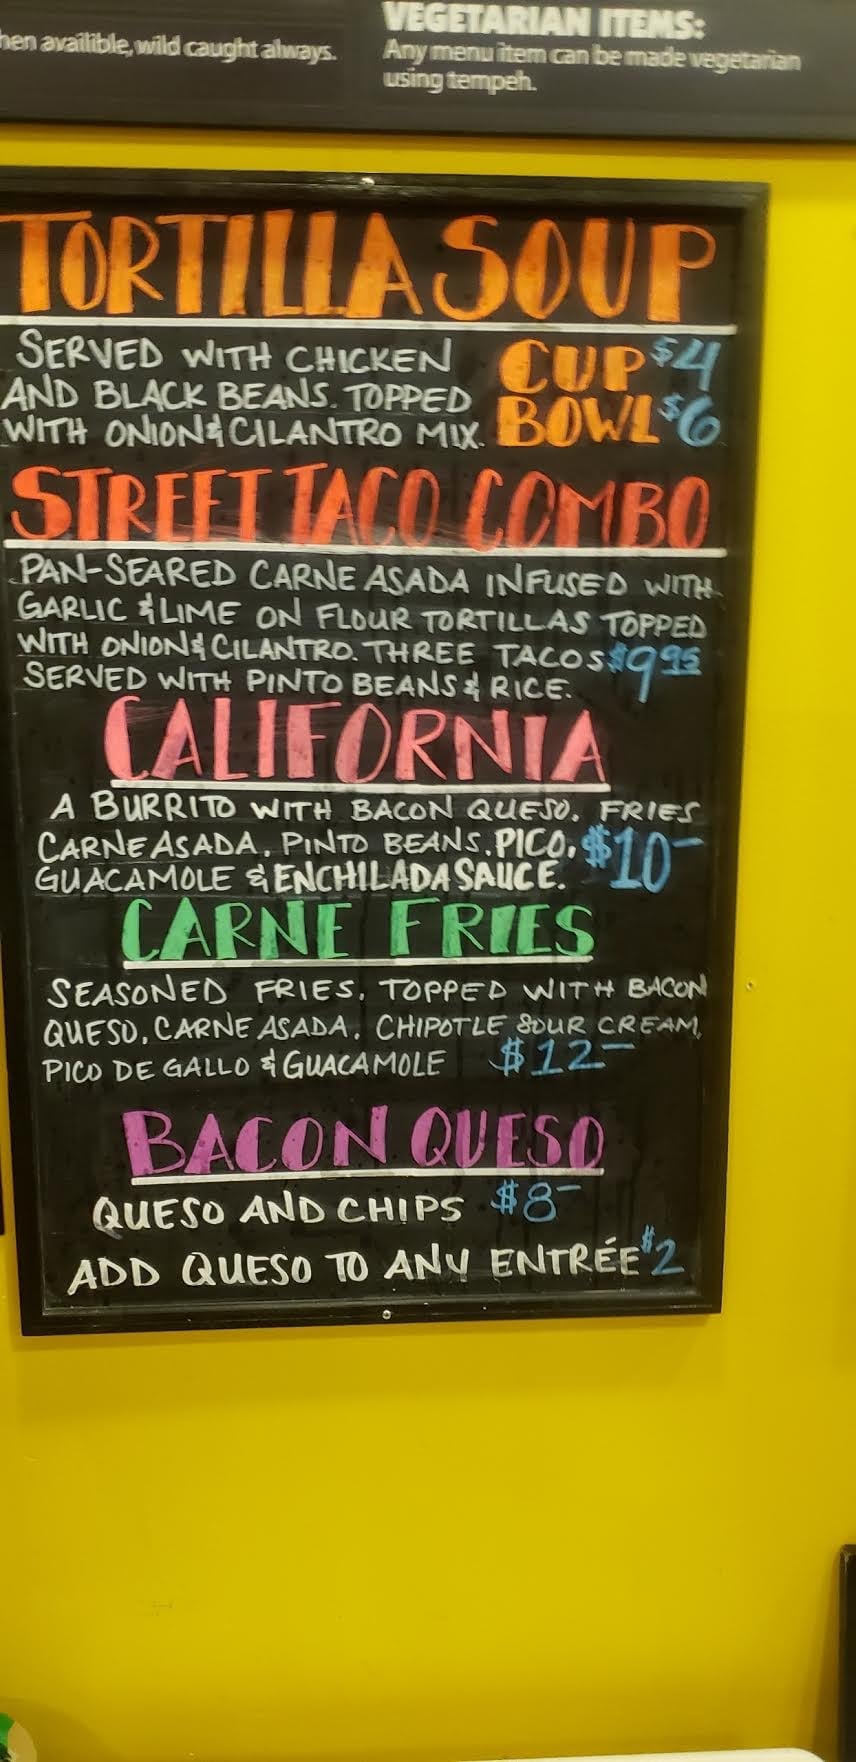 hen availible, wild caught always.
VEGETARIAN ITEMS:
Any menu item can be made vegetarian
using tempeh.
TORTILLA SOUP
SERVED WITH CHICKEN
AND BLACK BEANS. TOPPED
WITH ONION & CILANTRO MIX.
CUP $4
BOWL $6
STREET TACO COMBO
PAN-SEARED CARNE ASADA INFUSED WITH
GARLIC & LIME ON FLOUR TORTILLAS TOPPED
WITH ONION & CILANTRO. THREE TACOS $9.95
SERVED WITH PINTO BEANS & RICE.
CALIFORNIA
A BURRITO WITH BACON QUESO, FRIES
CARNE ASADA, PINTO BEANS, PICO, $10-
GUACAMOLE & ENCHILADA SAUCE.
CARNE FRIES
SEASONED FRIES, TOPPED WITH BACON
QUESO, CARNE ASADA, CHIPOTLE SOUR CREAM,
PICO DE GALLO & GUACAMOLE $12-
BACON QUESO
QUESO AND CHIPS $8-
ADD QUESO TO ANY ENTRÉE $2